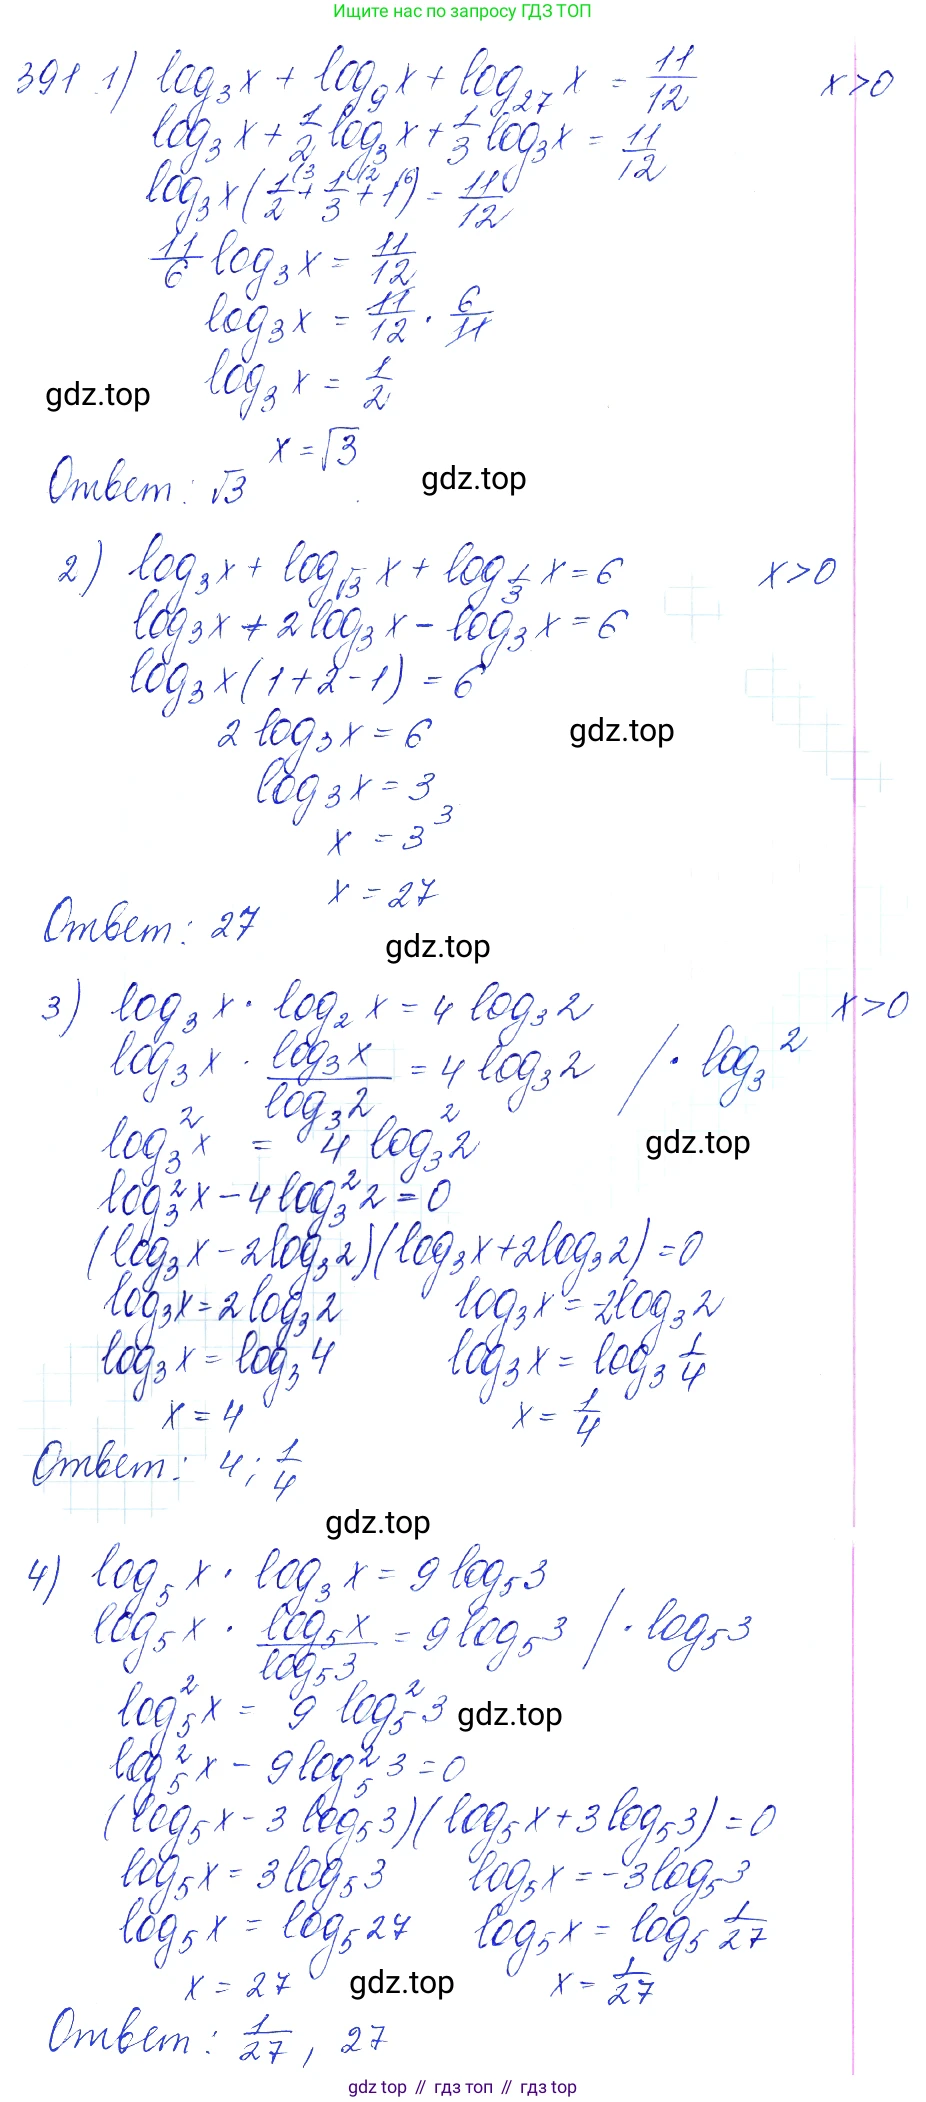 Ищите нас по запросу ГДЗ ТОП
391 1) log₃x + log₉x + log₂₇x = 11/12 x>0
log₃x + 1/2 log₃x + 1/3 log₃x = 11/12
log₃x (1/2⁽³ + 1/3⁽² + 1⁽⁶) = 11/12
11/6 log₃x = 11/12
log₃x = 11/12 · 6/11
log₃x = 1/2
gdz.top
x = √3
Ответ: √3
gdz.top
2) log₃x + log_√3 x + log_1/3 x = 6 x>0
log₃x + 2log₃x - log₃x = 6
log₃x (1+2-1) = 6
2 log₃x = 6
gdz.top
log₃x = 3
x = 3³
x = 27
Ответ: 27
gdz.top
3) log₃x · log₂x = 4 log₃2 x>0
log₃x · log₃x/log₃2 = 4 log₃2 / · log₃2
log₃²x = 4 log₃²2
gdz.top
log₃²x - 4log₃²2 = 0
(log₃x - 2log₃2)(log₃x + 2log₃2) = 0
log₃x = 2log₃2 log₃x = -2log₃2
log₃x = log₃4 log₃x = log₃ 1/4
x = 4 x = 1/4
Ответ: 4; 1/4
gdz.top
4) log₅x · log₃x = 9 log₅3
log₅x · log₅x/log₅3 = 9 log₅3 / · log₅3
log₅²x = 9 log₅²3
gdz.top
log₅²x - 9log₅²3 = 0
(log₅x - 3 log₅3)(log₅x + 3 log₅3) = 0
log₅x = 3log₅3 log₅x = -3log₅3
log₅x = log₅27 log₅x = log₅ 1/27
x = 27 gdz.top x = 1/27
Ответ: 1/27, 27
gdz top // гдз топ // gdz top